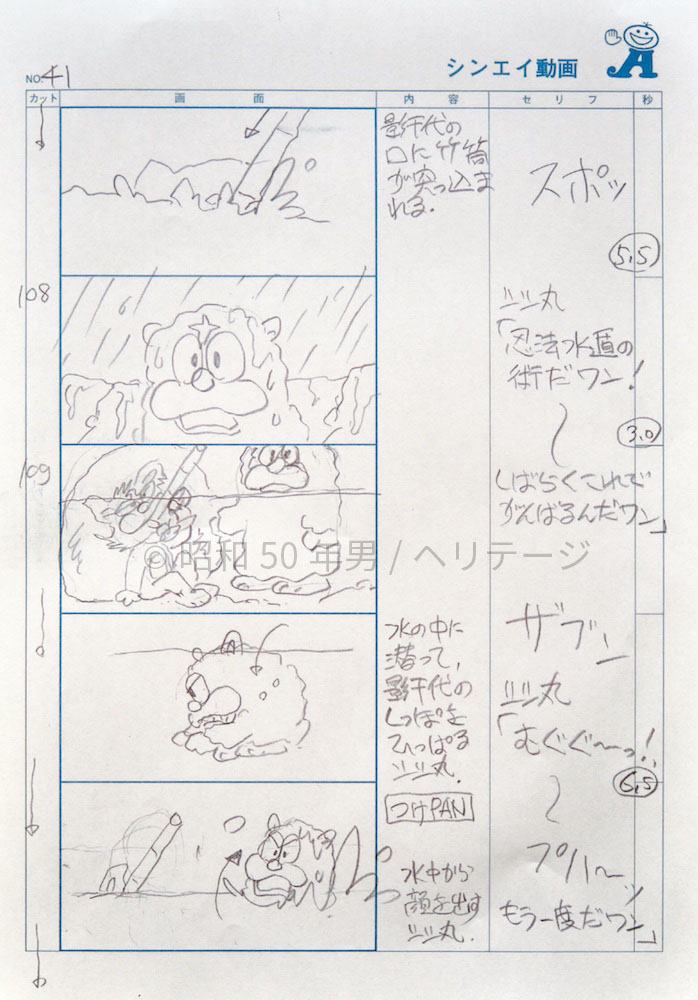 NO. 41
シンエイ動画
カット
画面
内容
セリフ
秒
影千代の
口に竹筒
が突っ込ま
れる.
スポッ
5,5
108
シシ丸
「忍法水遁の
術だワン!
〜
3,0
109
しばらくこれで
がんばるんだワン」
© 昭和 50 年男 / ヘリテージ
水の中に
潜って,
影千代の
しっぽを
ひっぱる
シシ丸.
つけPAN
ザブン
シシ丸
「むぐぐ〜っ!
6,5
〜
水中から
顔を出す
シシ丸.
プハ〜ッ
もう一度だワン」